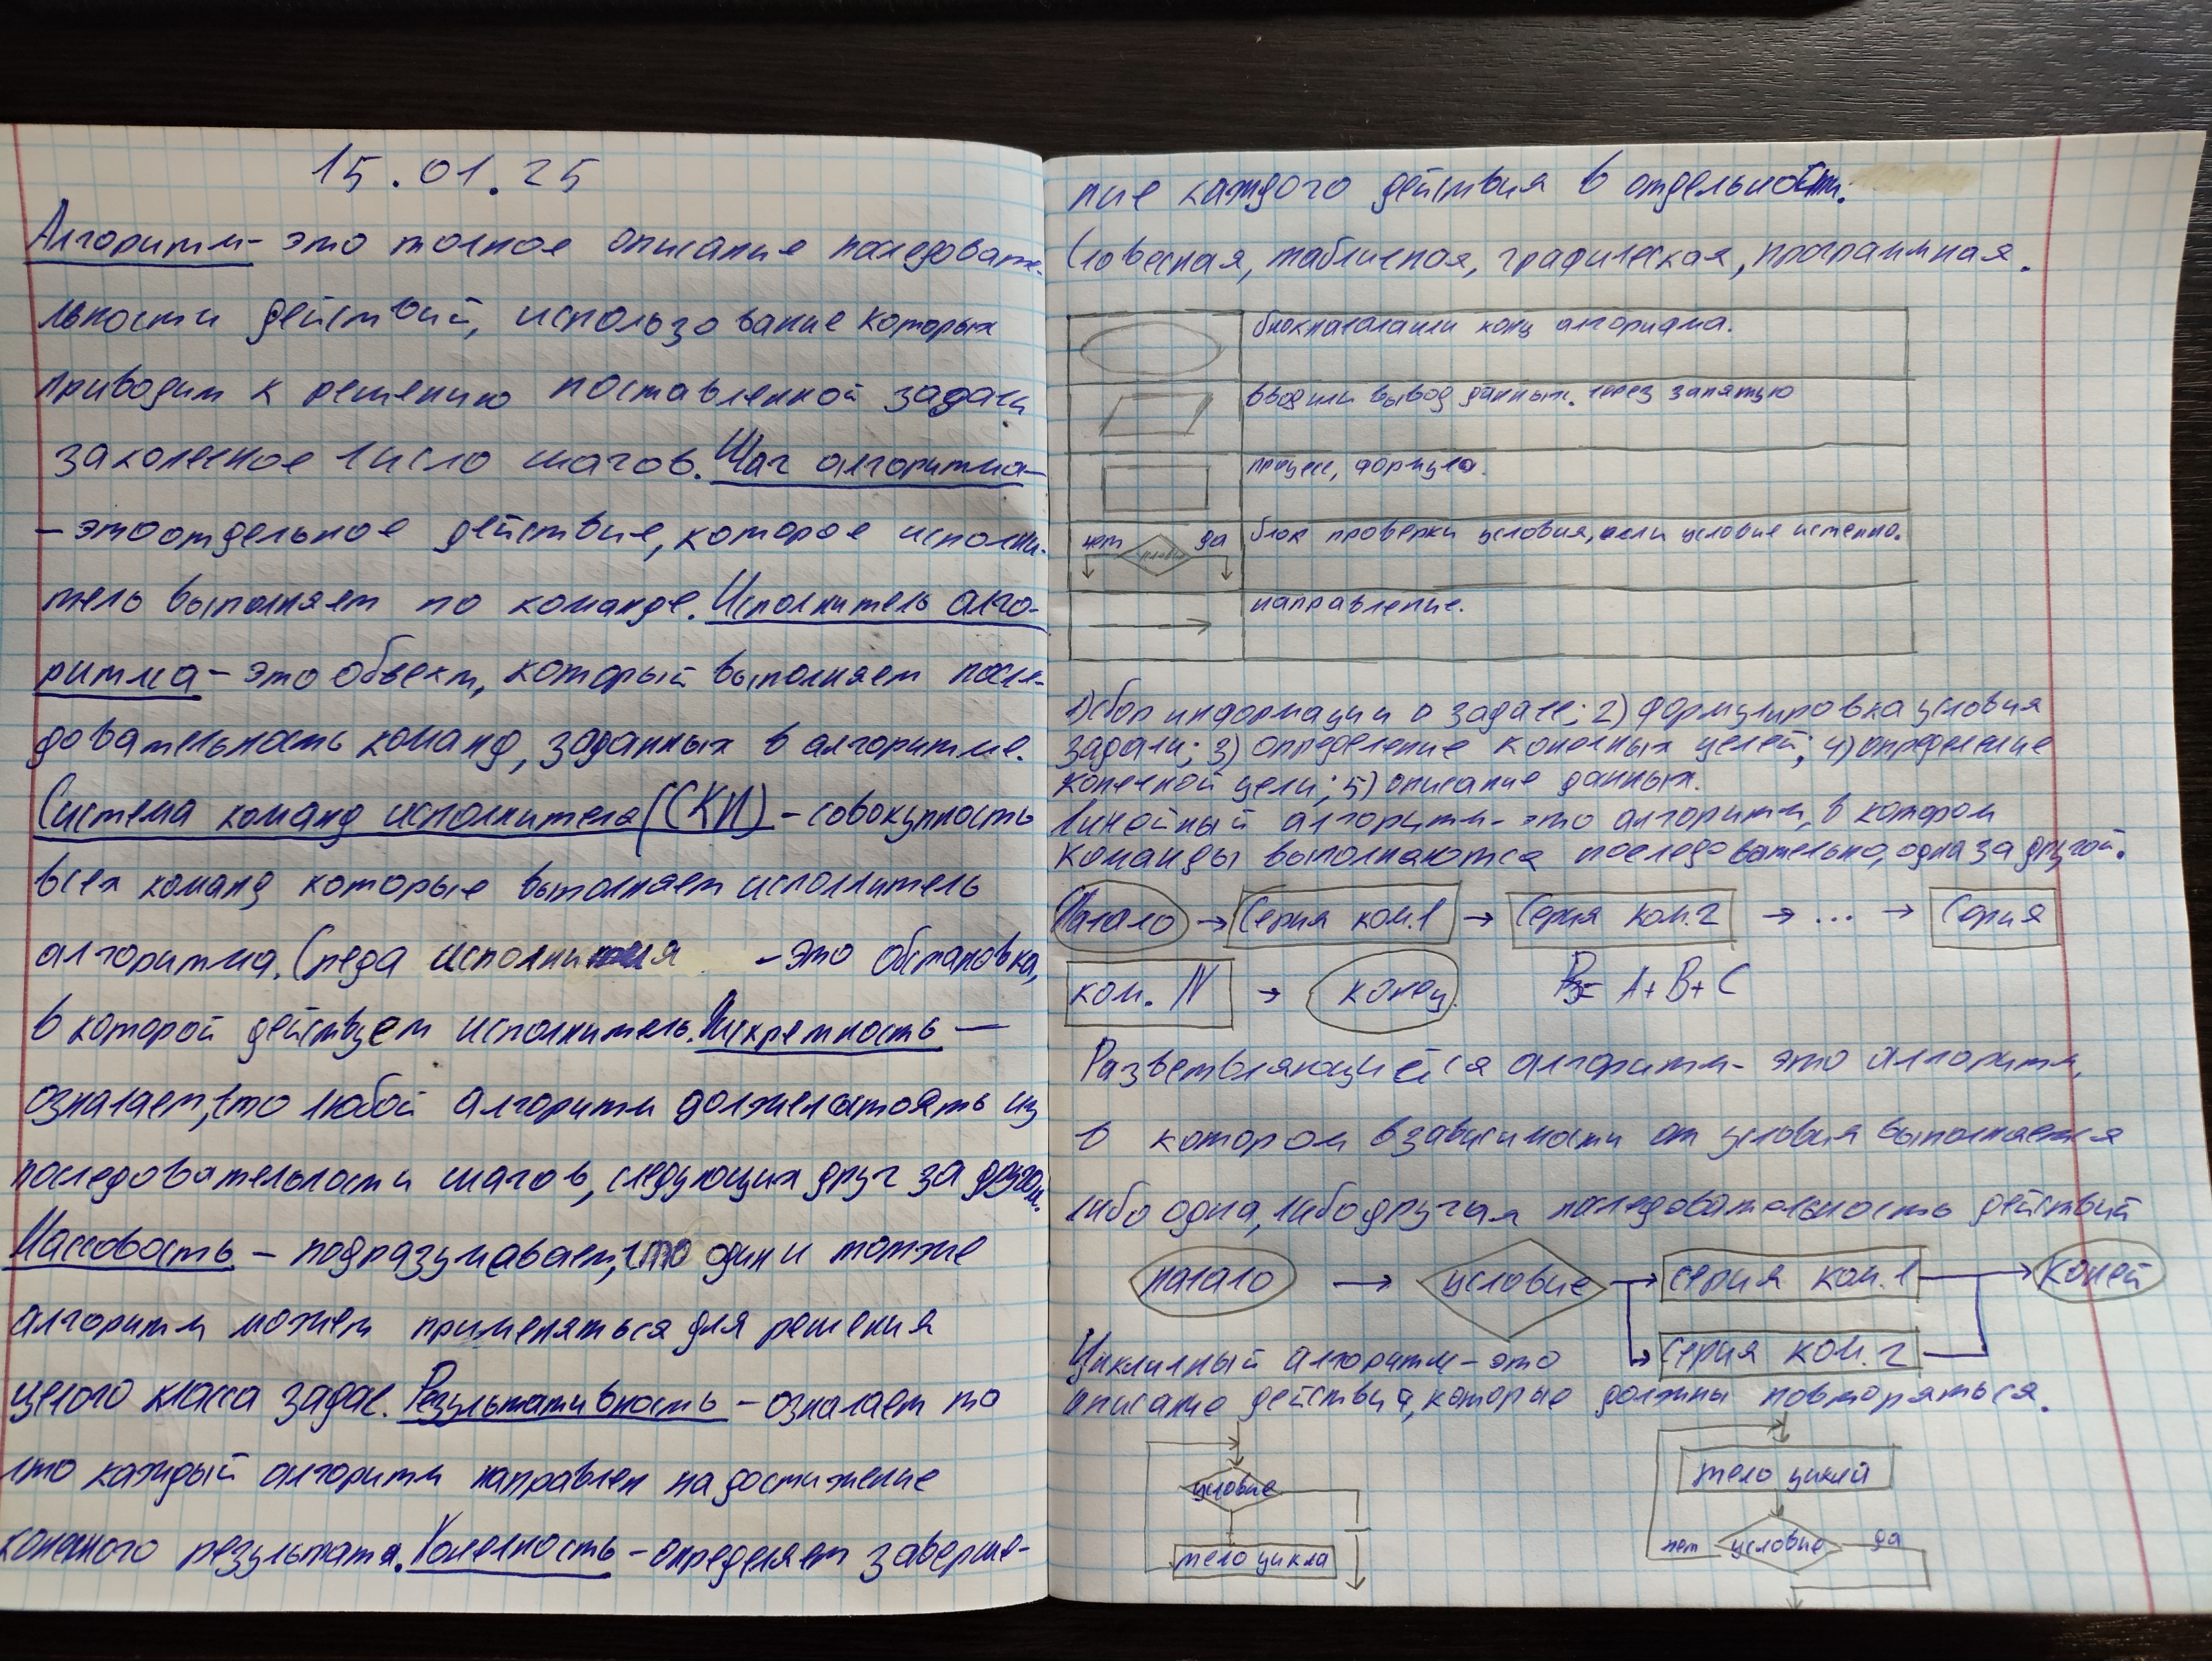 15.01.25
Алгоритм- это точное описание последовате-
льности действий, использование которых
приводит к решению поставленной задачи
законечное число шагов. Шаг алгоритма-
- этоотдельное действие, которое исполни-
тель выполняет по команде. Исполнитель алго-
ритма - это объект, который выполняет после-
довательность команд, заданных в алгоритме.
Система команд исполнителя (СКИ) - совокупность
всех команд которые выполняет исполнитель
алгоритма. Среда исполнителя - это обстановка,
в которой действует исполнитель. Дискретность -
означает, что любой алгоритм должен состоять из
последовательности шагов, следующих друг за другом.
Массовость - подразумевает, что один и тотже
алгоритм может применяться для решения
целого класса задач. Результативность - означает то
что каждый алгоритм направлен на достижение
конечного результата. Конечность - определяет заверше-
ние каждого действия в отдельности.
Словесная, табличная, графическая, программная.
блокначалаили конц алгоритма.
ввод или вывод данных. через запятую
процесс, формула.
нет условие да
блок проверки условия, если условие истенно.
направление.
1) сбор информации о задаче; 2) формулировка условия
задачи; 3) определение конечных целей; 4) определение
конечной цели; 5) описание данных.
Линейный алгоритм - это алгоритм, в котором
команды выполнаются последовательно, одна за другой.
Начало → Серия ком.1 → Серия ком.2 → ... → Серия
ком. N → конец. = A+B+C
Разветвляющийся алгоритм - это алгоритм,
в котором взависимости от условия выполнается
либо одна, либо другая последовательность действий
начало → условие серия ком.1 конец
серия ком.2
Цикличный алгоритм - это
описание действий, которые должны повторяться.
условие
тело цикла
тело циклй
нет условие да